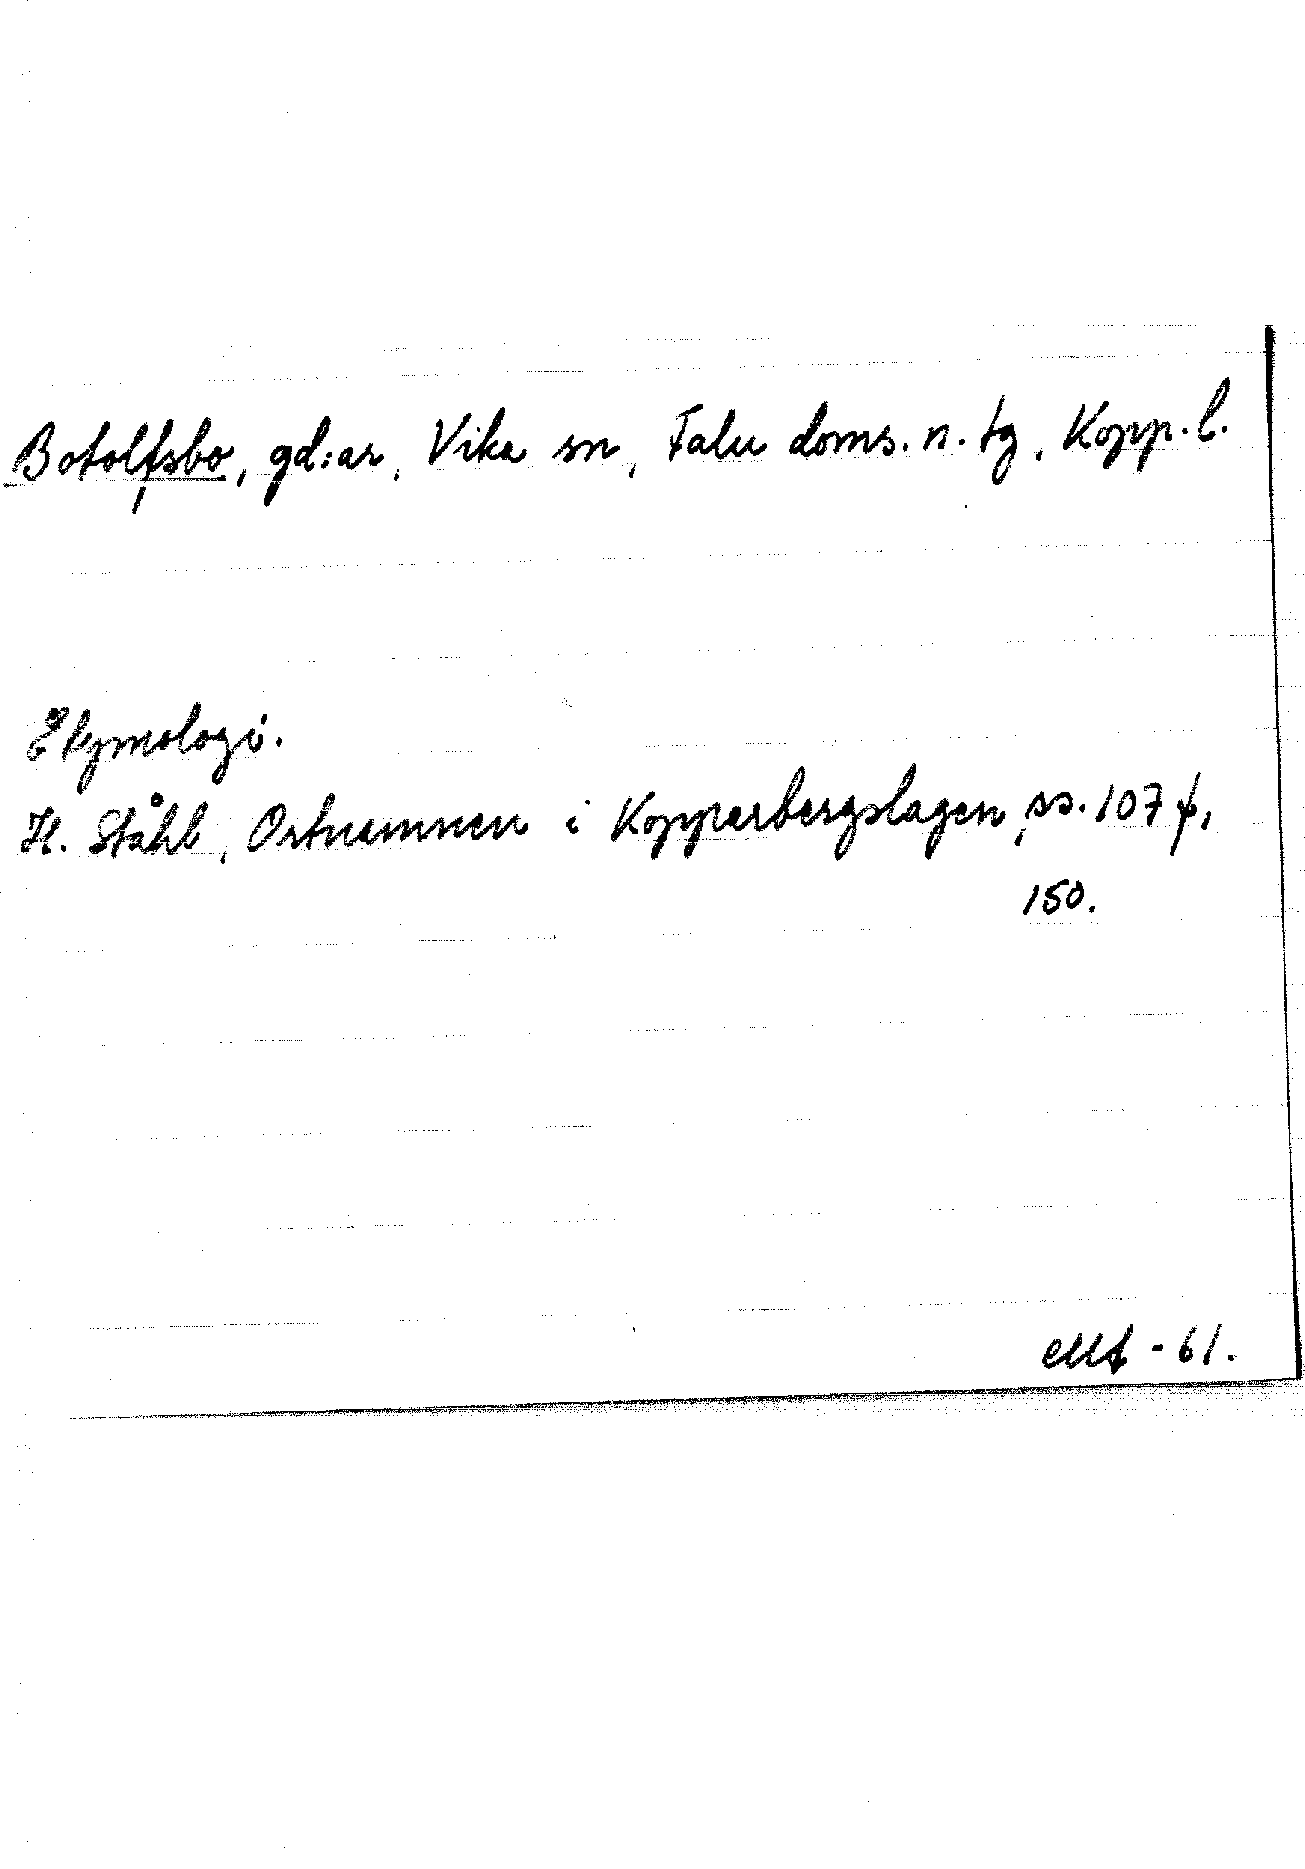 Botolfsbo, gd:ar, Vika sn, Falu doms. n. tg, Kopp. l.
Etymologi.
H. Ståhl, Ortnamnen i Kopparbergslagen, ss. 107 f,
150.
- 61.